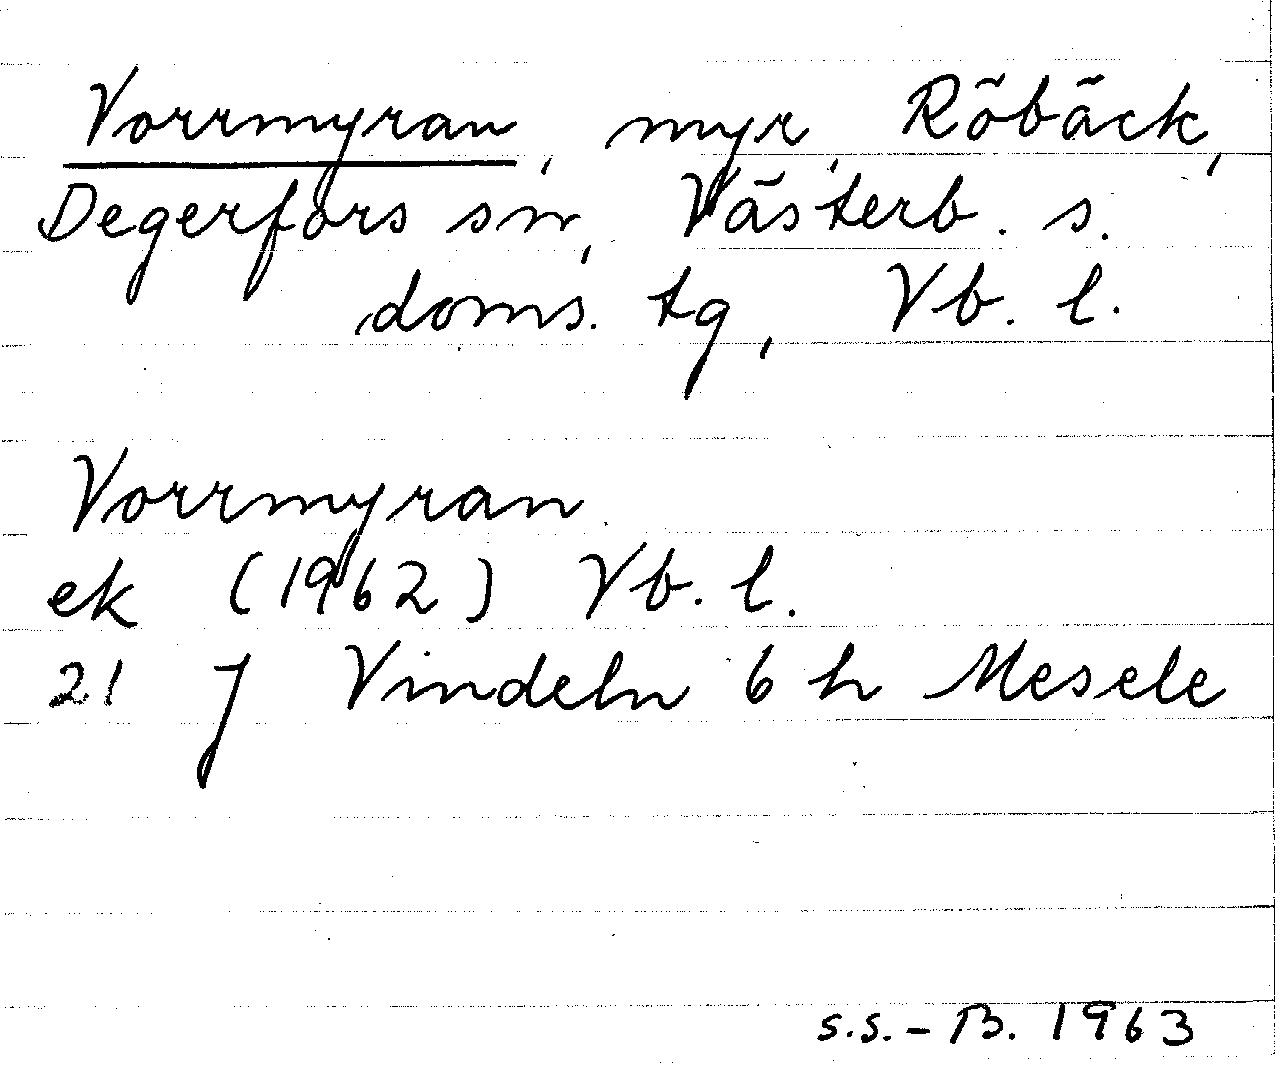 Vorrmyran, myr, Röbäck,
Degerfors sn, Västerb. s.
doms. tg, Vb. l.
Vorrmyran
ek (1962) Vb. l.
21 J Vindeln 6 h Mesele
S.S.-B. 1963